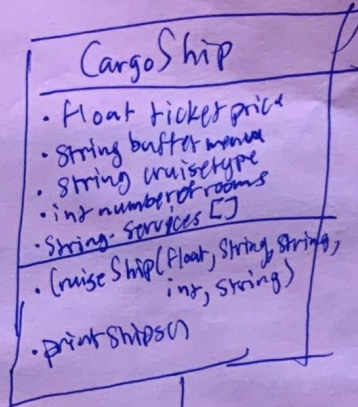 CargoShip
• float ticketprice
• String buffetmenu
• String cruisetype
• int numberofrooms
• String services []
• CruiseShip(float, String, String,
int, String)
• printShips()